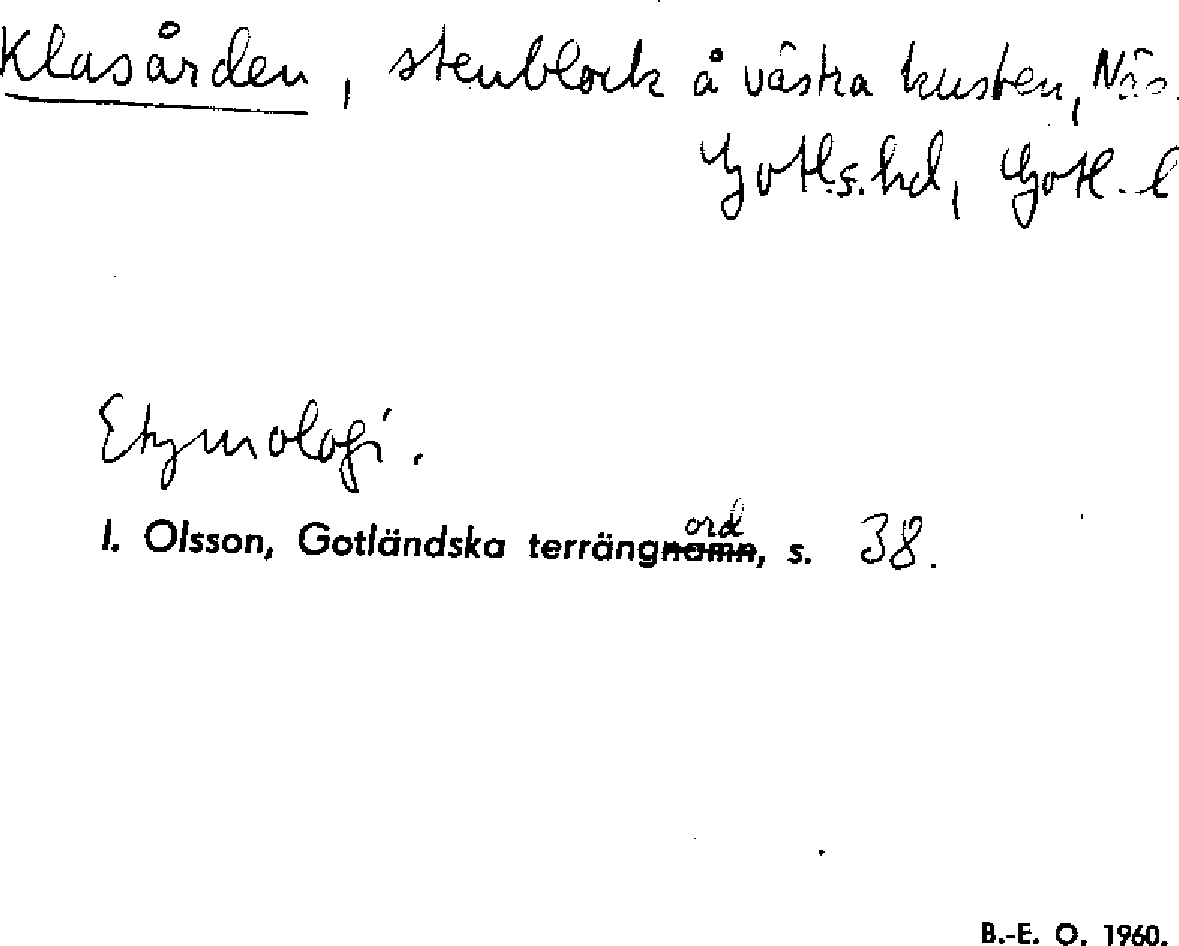 Klasården, stenblock å västra kusten, Näs.
Gotls.hd, Gotl. l
Etymologi.
I. Olsson, Gotländska terrängnamn, s. 38.
ord
B.-E. O. 1960.